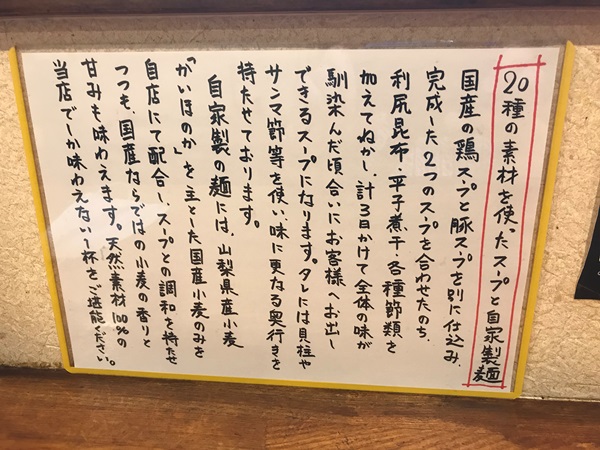 20種の素材を使ったスープと自家製麺
国産の鶏スープと豚スープを別に仕込み、
完成した2つのスープを合わせたのち、
利尻昆布・平子煮干・各種節類を
加えてねかし、計3日かけて全体の味が
馴染んだ頃合いにお客様へお出し
できるスープになります。タレには貝柱や
サンマ節等を使い、味に更なる奥行きを
持たせております。
自家製の麺には、山梨県産小麦
「かいほのか」を主とした国産小麦のみを
自店にて配合し、スープとの調和を持たせ
つつも、国産ならではの小麦の香りと
甘みも味わえます。天然素材100%の
当店でしか味わえない一杯をご堪能ください。